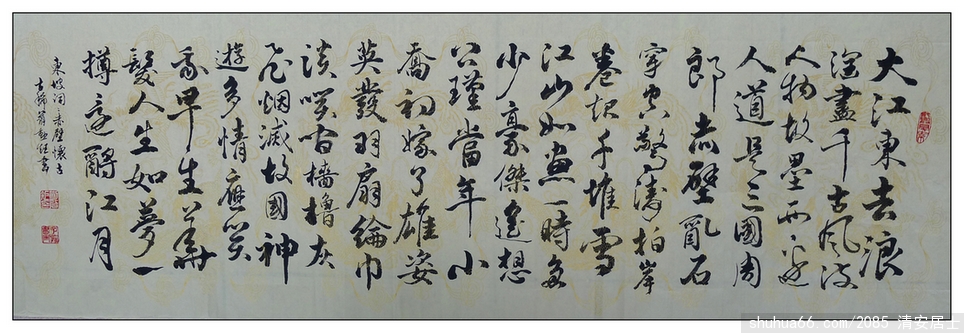 大江東去浪
淘盡千古風流
人物故壘西邊
人道是三國周
郎赤壁亂石
穿空驚濤拍岸
卷起千堆雪
江山如畫一時多
少豪傑遙想
公瑾當年小
喬初嫁了雄姿
英發羽扇綸巾
談笑間檣櫓灰
飛烟滅故國神
遊多情應笑
我早生華
髮人生如夢一
樽還酹江月
東坡詞赤壁懷古
古稀
shuhua66.com/2085 清安居士